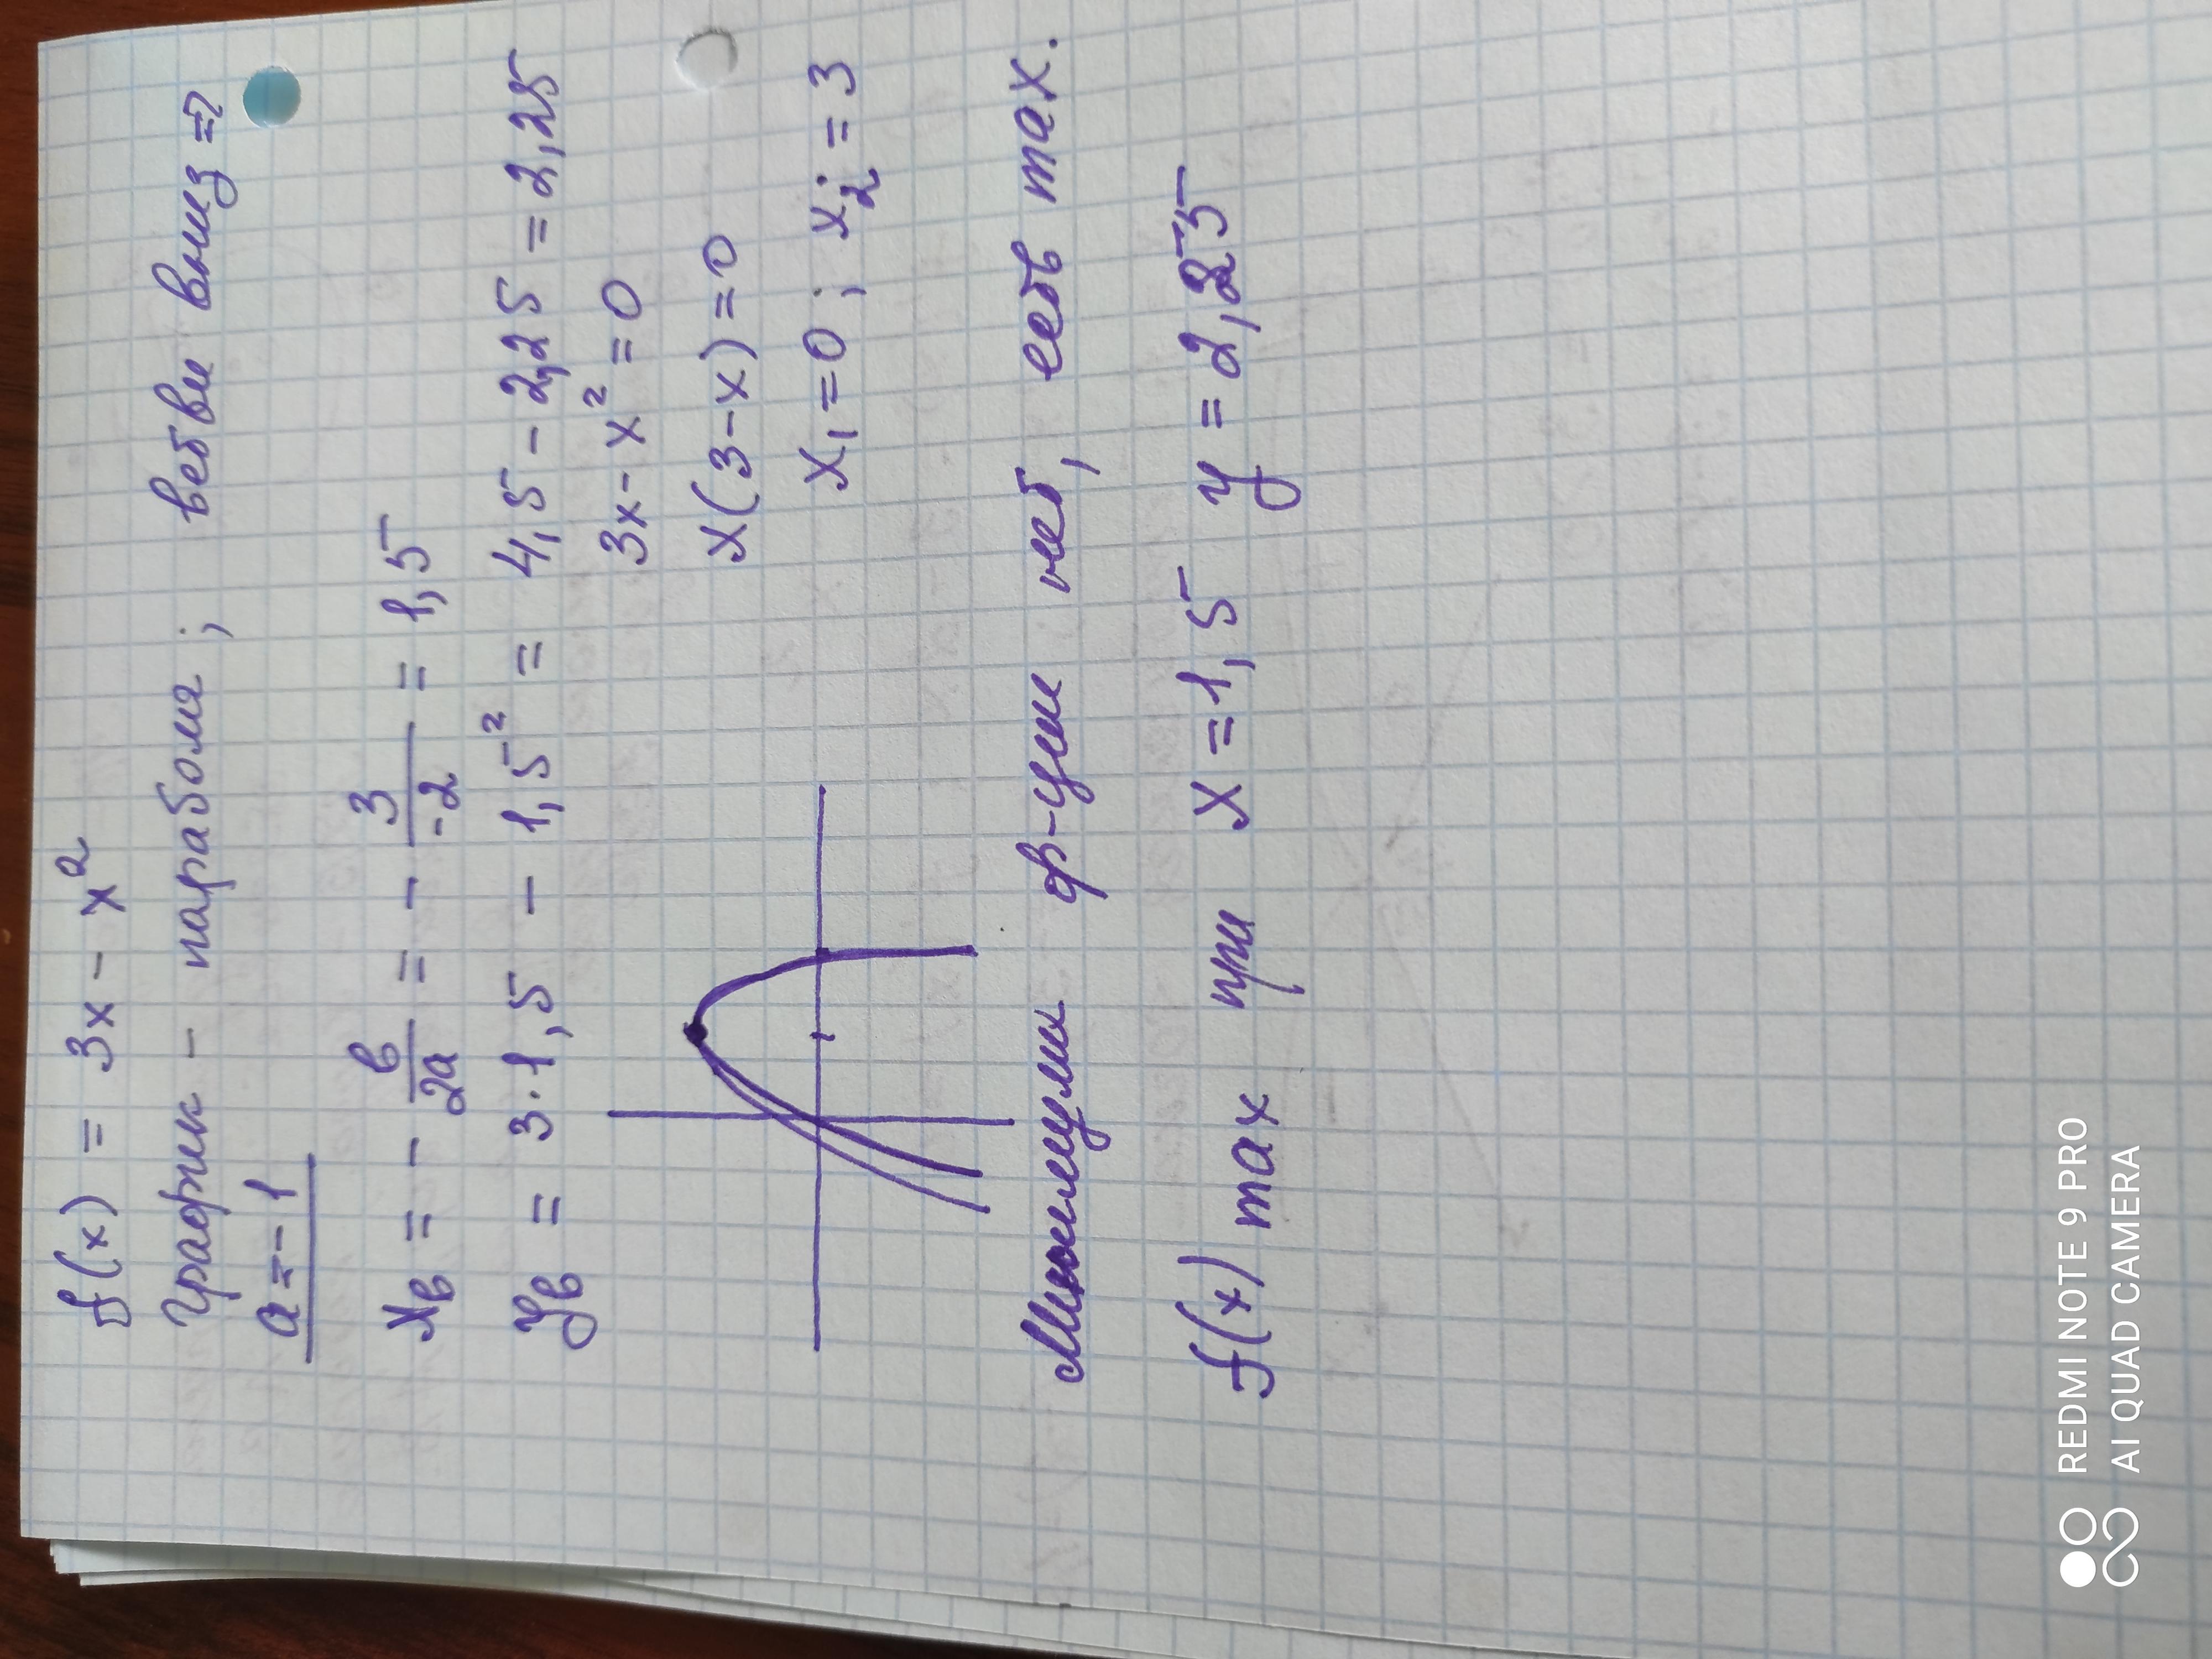 f(x) = 3x - x²
График - парабола; ветви вниз =>
a = -1
xв = - в/2a = - 3/-2 = 1,5
yв = 3·1,5 - 1,5² = 4,5 - 2,25 = 2,25
3x - x² = 0
x(3-x)=0
x₁=0; x₂=3
Минимума ф-ции нет, есть max.
f(x) max при x=1,5 y=2,25
REDMI NOTE 9 PRO
AI QUAD CAMERA